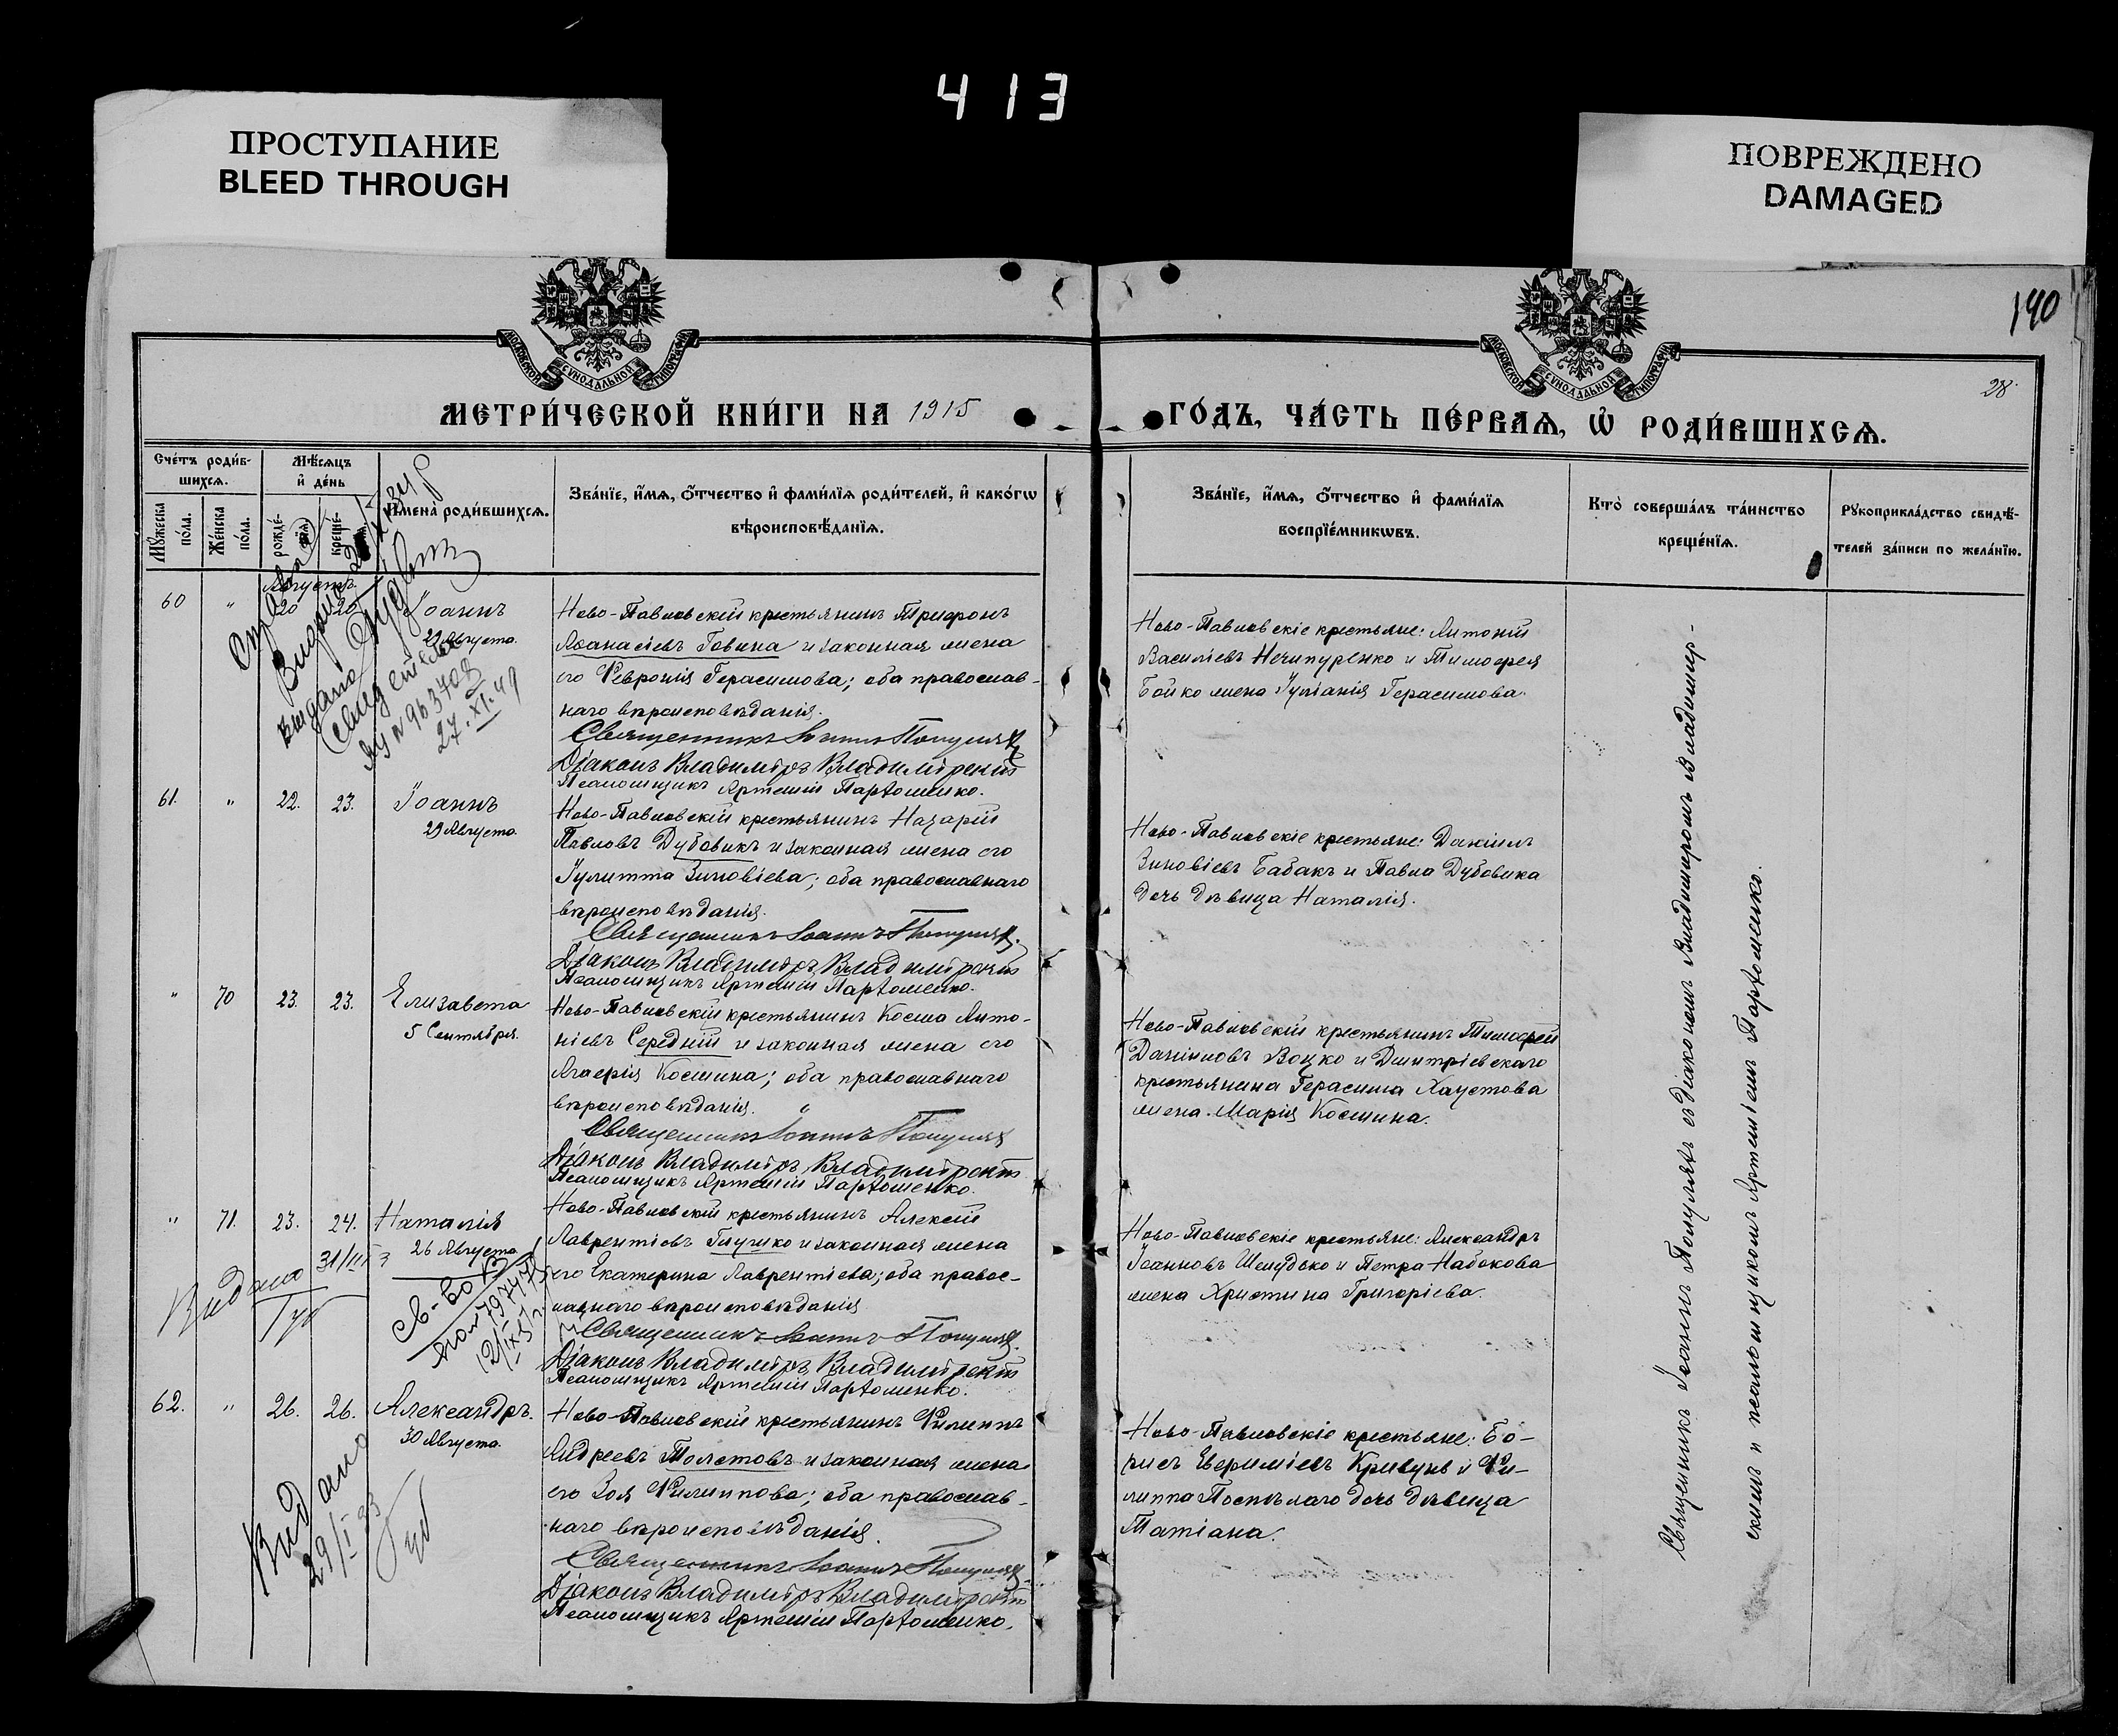 413
ПРОСТУПАНИЕ
BLEED THROUGH
ПОВРЕЖДЕНО
DAMAGED
190
28.
МОСКОВСКОЙ СУНОДАЛЬНОЙ ТИПОГРАФІИ
МОСКОВСКОЙ СУНОДАЛЬНОЙ ТИПОГРАФІИ
МЕТРИ́ЧЕСКОЙ КНИ́ГИ НА 1915
ГО́ДЪ, ЧА́СТЬ ПЕ́РВАѦ, Ѡ҆ РОДИ́ВШИХСѦ.
Сче́тъ роди́в-
шихсѧ.
Мѣ́сѧцъ
и҆ де́нь
Мꙋ́жеска
по́ла.
Же́нска
по́ла.
рожде́-
креще́-
И҆мена̀ роди́вшихсѧ.
Зва́нїе, и҆́мѧ, ѻ҆́тчество и҆ фами́лїѧ роди́телей, и҆ како́гѡ
вѣроисповѣ́данїѧ.
Зва́нїе, и҆́мѧ, ѻ҆́тчество и҆ фами́лїѧ
воспрїе́мникѡвъ.
Кто̀ соверша́лъ та́инство
креще́нїѧ.
Рꙋкоприкла́дство свидѣ́-
телей за́писи по жела́нїю.
Августъ.
60 " 20 20 Іоаннъ
29 Августа.
Ново-Павловскій крестьянинъ Трифонъ
Аѳанасіевъ Говина и законная жена
его Феѵронія Герасимова; оба православ-
наго вѣроисповѣданія.
Священникъ Іоаннъ Погуляй
Діаконъ Владиміръ Владимірскій
Псаломщикъ Артемій Пархоменко.
Ново-Павловскіе крестьяне: Антоній
Василіевъ Нечипуренко и Тимоѳея
Бойко жена Іуліанія Герасимова.
Выдано
27.XI.49
61. " 22. 23. Іоаннъ
29 Августа.
Ново-Павловскій крестьянинъ Назарій
Павловъ Дубовикъ и законная жена его
Іулитта Зиновіева; оба православнаго
вѣроисповѣданія.
Священникъ Іоаннъ Погуляй.
Діаконъ Владиміръ Владимірскій
Псаломщикъ Артемій Пархоменко.
Ново-Павловскіе крестьяне: Даніилъ
Зиновіевъ Бабакъ и Павла Дубовика
дочь дѣвица Наталія.
" 70 23. 23. Елизавета
5 Сентября.
Ново-Павловскій крестьянинъ Косма Анто-
ніевъ Середній и законная жена его
Агаѳія Космина; оба православнаго
вѣроисповѣданія.
Священникъ Іоаннъ Погуляй
Діаконъ Владиміръ Владимірскій
Псаломщикъ Артемій Пархоменко.
Ново-Павловскій крестьянинъ Тимоѳей
Даніиловъ Воцко и Дмитріевскаго
крестьянина Герасима Хаустова
жена Марія Космина.
" 71. 23. 24. Наталія
26 Августа
Ново-Павловскій крестьянинъ Алексій
Лаврентіевъ Глушко и законная жена
его Екатерина Лаврентіева; оба право-
славнаго вѣроисповѣданія
Священникъ Іоаннъ Погуляй.
Діаконъ Владиміръ Владимірскій
Псаломщикъ Артемій Пархоменко.
Ново-Павловскіе крестьяне: Александръ
Іоанновъ Шелудько и Петра Набокова
жена Христина Григоріева.
Видано
св-во
62. " 26. 26. Александръ.
30 Августа.
Ново-Павловскій крестьянинъ Филиппъ
Андреевъ Толстовъ и законная жена
его Зоя Филиппова; оба православ-
наго вѣроисповѣданія.
Священникъ Іоаннъ Погуляй
Діаконъ Владиміръ Владимірскій
Псаломщикъ Артемій Пархоменко.
Ново-Павловскіе крестьяне: Бо-
рисъ Евѳиміевъ Кривунъ и Фи-
липпа Поспѣлаго дочь дѣвица
Татіана.
Видано
29/I 33
Священникъ Іоаннъ Погуляй съ діакономъ Владиміромъ Владимір-
скимъ и псаломщикомъ Артеміемъ Пархоменко.